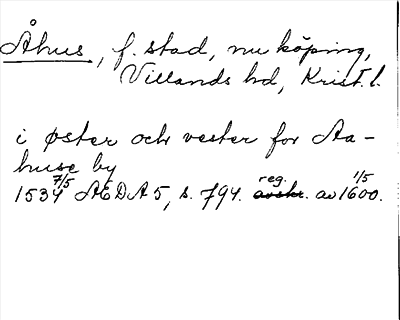 Åhus, f. stad, nu köping,
Villands hd, Krist. l.
i øster och vester for Aa-
huse by
1534 7/5 AEDA 5, s. 794. reg. avskr. av 1600. 1/5